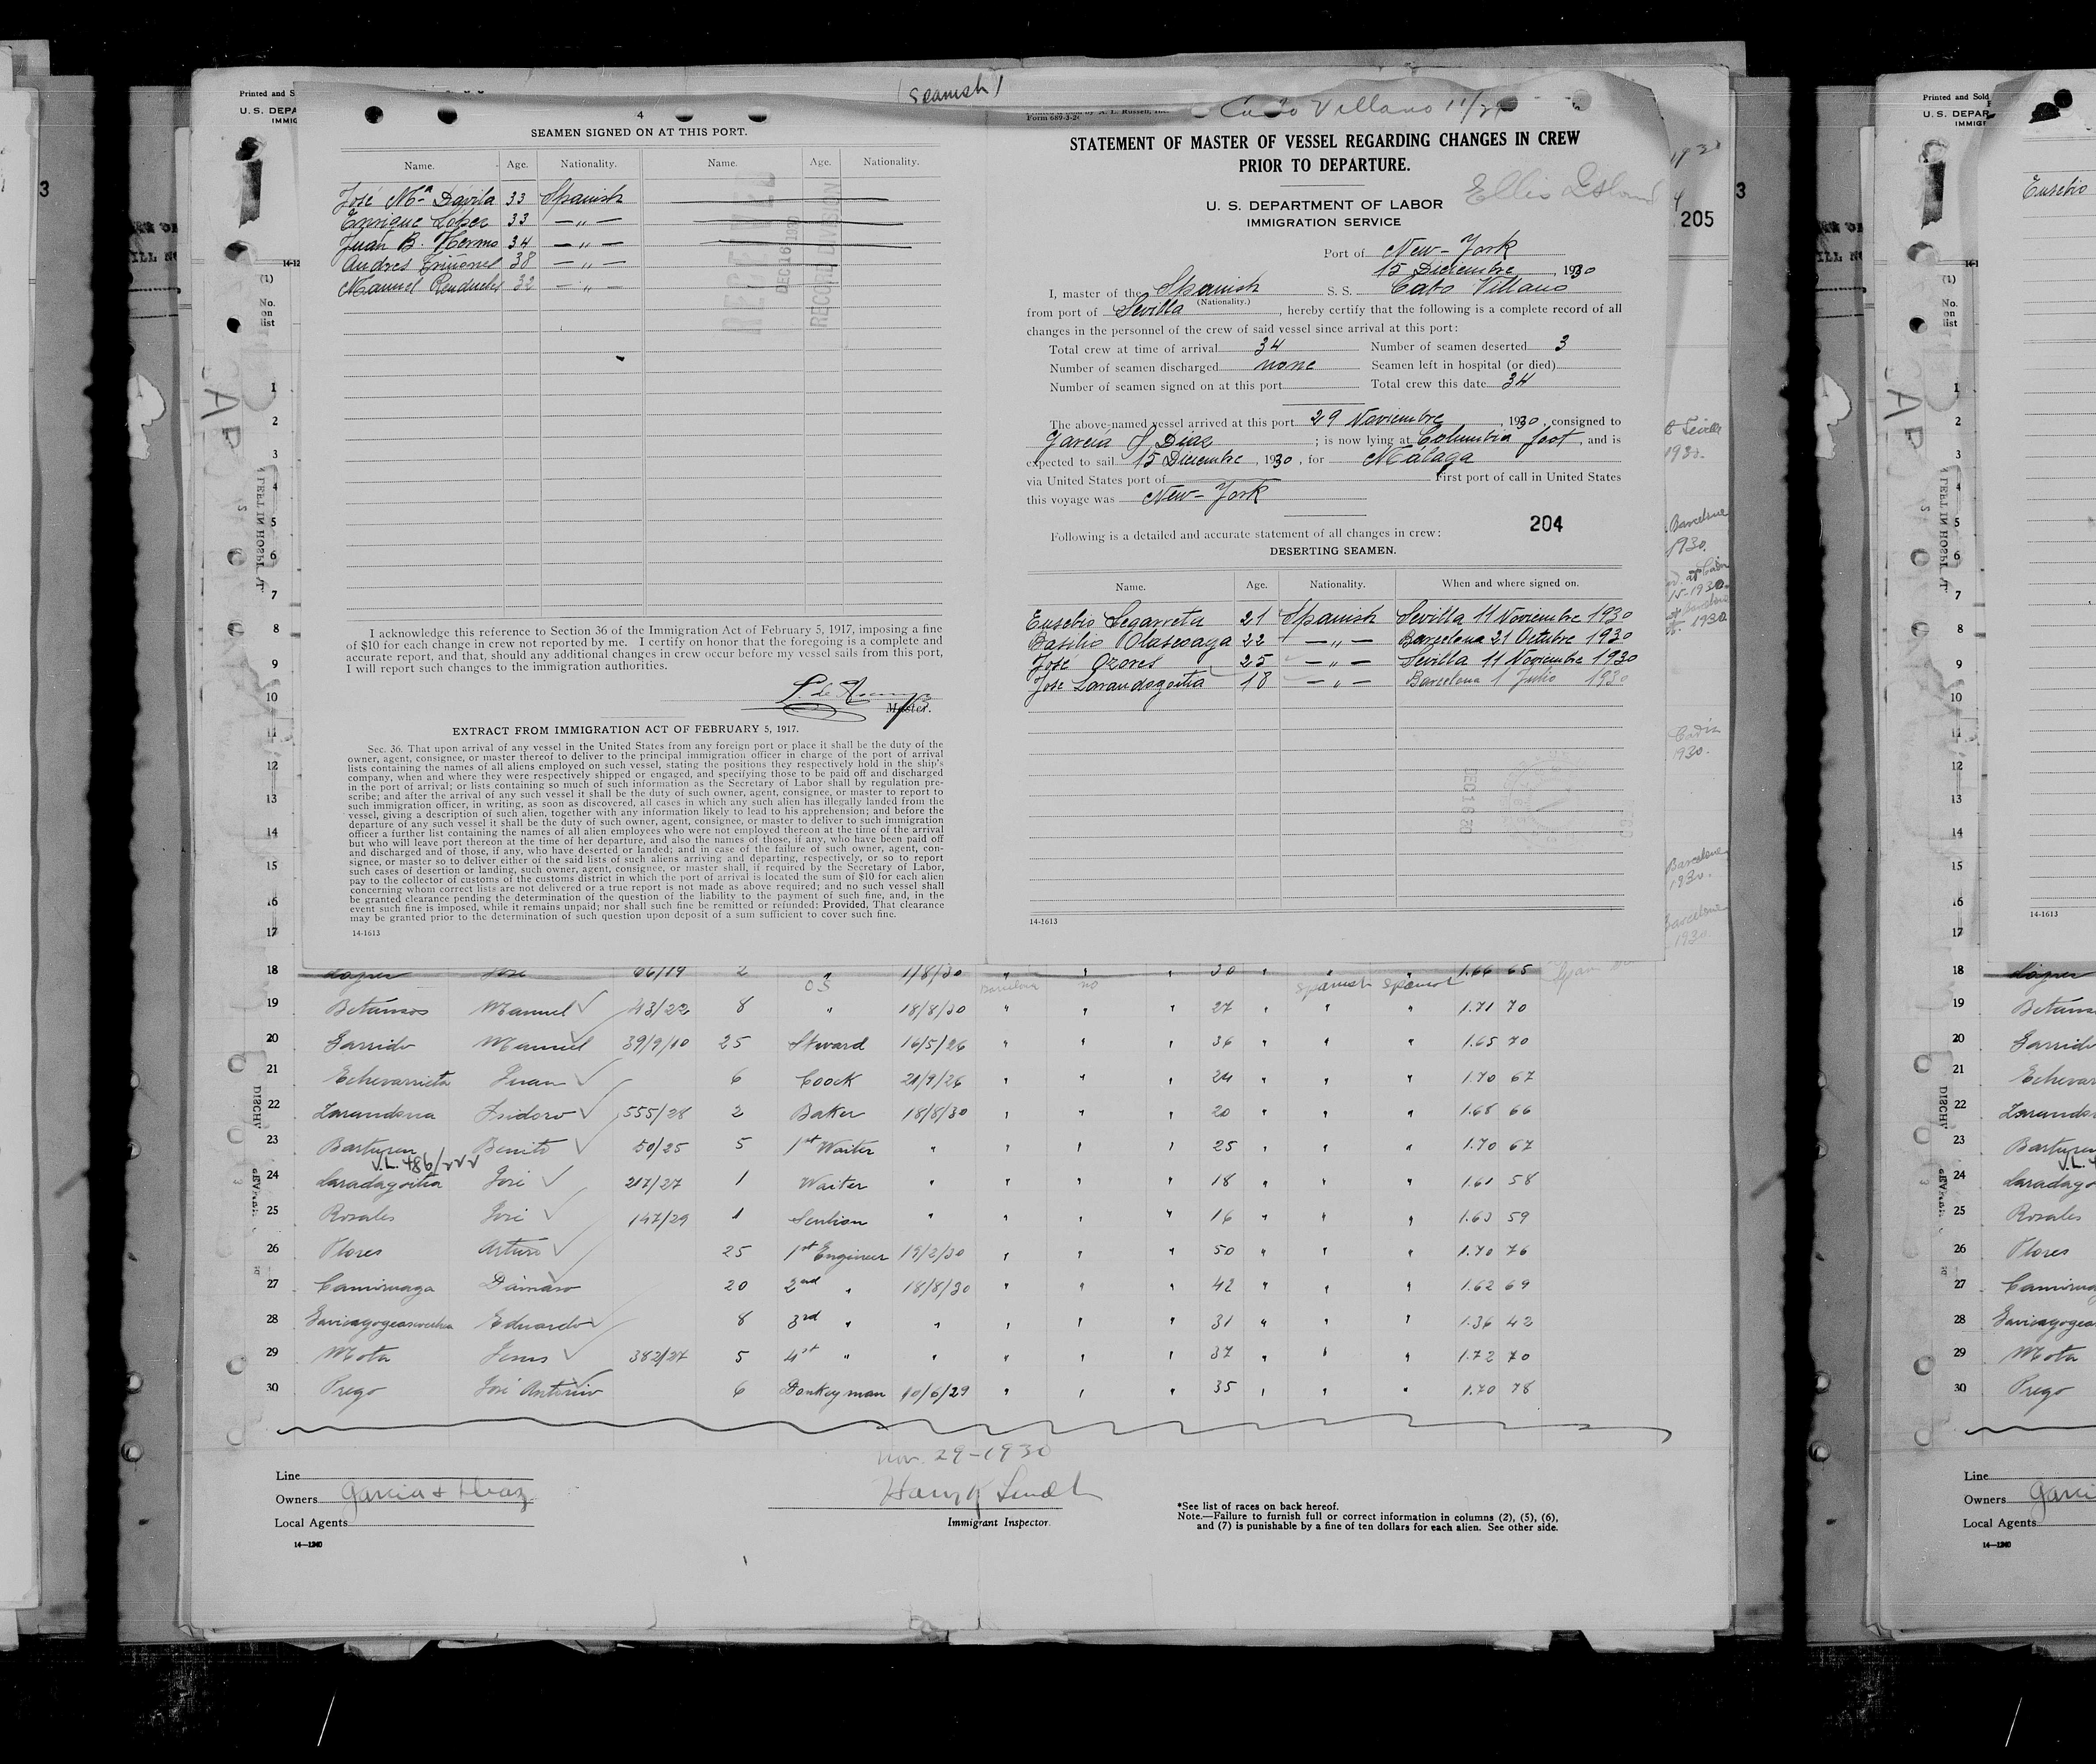 (Spanish)
4
SEAMEN SIGNED ON AT THIS PORT.
Name. Age. Nationality. Name. Age. Nationality.
José Mª Dávila 33 Spanish
Enrique López 33 — " —
Juan B. 34 — " —
Andres 38 — " —
Manuel 32 — " —
RECEIVED
DEC 16 1930
RECORD DIVISION
I acknowledge this reference to Section 36 of the Immigration Act of February 5, 1917, imposing a fine
of $10 for each change in crew not reported by me. I certify on honor that the foregoing is a complete and
accurate report, and that, should any additional changes in crew occur before my vessel sails from this port,
I will report such changes to the immigration authorities.
Master.
EXTRACT FROM IMMIGRATION ACT OF FEBRUARY 5, 1917.
Sec. 36. That upon arrival of any vessel in the United States from any foreign port or place it shall be the duty of the
owner, agent, consignee, or master thereof to deliver to the principal immigration officer in charge of the port of arrival
lists containing the names of all aliens employed on such vessel, stating the positions they respectively hold in the ship's
company, when and where they were respectively shipped or engaged, and specifying those to be paid off and discharged
in the port of arrival; or lists containing so much of such information as the Secretary of Labor shall by regulation pre-
scribe; and after the arrival of any such vessel it shall be the duty of such owner, agent, consignee, or master to report to
such immigration officer, in writing, as soon as discovered, all cases in which any such alien has illegally landed from the
vessel, giving a description of such alien, together with any information likely to lead to his apprehension; and before the
departure of any such vessel it shall be the duty of such owner, agent, consignee, or master to deliver to such immigration
officer a further list containing the names of all alien employees who were not employed thereon at the time of the arrival
but who will leave port thereon at the time of her departure, and also the names of those, if any, who have been paid off
and discharged and of those, if any, who have deserted or landed; and in case of the failure of such owner, agent, con-
signee, or master so to deliver either of the said lists of such aliens arriving and departing, respectively, or so to report
such cases of desertion or landing, such owner, agent, consignee, or master shall, if required by the Secretary of Labor,
pay to the collector of customs of the customs district in which the port of arrival is located the sum of $10 for each alien
concerning whom correct lists are not delivered or a true report is not made as above required; and no such vessel shall
be granted clearance pending the determination of the question of the liability to the payment of such fine, and, in the
event such fine is imposed, while it remains unpaid; nor shall such fine be remitted or refunded: Provided, That clearance
may be granted prior to the determination of such question upon deposit of a sum sufficient to cover such fine.
14-1613
Cabo Villano 11/29
Form 689-3-2
STATEMENT OF MASTER OF VESSEL REGARDING CHANGES IN CREW
PRIOR TO DEPARTURE.
Ellis Island
U. S. DEPARTMENT OF LABOR
IMMIGRATION SERVICE
205
Port of New-York
15 Diciembre, 1930
I, master of the Spanish S. S. Cabo Villano
(Nationality.)
from port of Sevilla, hereby certify that the following is a complete record of all
changes in the personnel of the crew of said vessel since arrival at this port:
Total crew at time of arrival 34 Number of seamen deserted 3
Number of seamen discharged none Seamen left in hospital (or died)
Number of seamen signed on at this port Total crew this date 34
The above-named vessel arrived at this port 29 Noviembre, 1930, consigned to
Garcia & Diaz; is now lying at Columbia foot, and is
expected to sail 15 Diciembre, 1930, for Málaga
via United States port of First port of call in United States
this voyage was New-York
204
Following is a detailed and accurate statement of all changes in crew:
DESERTING SEAMEN.
Name. Age. Nationality. When and where signed on.
Eusebio Segarreta 21 Spanish Sevilla 11 Noviembre 1930
Basilio Olascoaga 22 — " — Barcelona 21 Octubre 1930
José Ozores 25 — " — Sevilla 11 Noviembre 1930
José Larandogoitia 18 — " — Barcelona 1 Julio 1930
DEC 16 30
14-1613
18 Lopez José 66/19 2 " 1/8/30 " " " 30 " " " 1.66 65
OS Barcelona no Spanish Spanish
19 Betanzos Manuel 43/22 8 " 18/8/30 " " " 27 " " " 1.71 70
20 Garrido Manuel 39/9/10 25 Steward 16/5/26 " " " 36 " " " 1.65 70
21 Echevarrieta Juan 6 Coock 21/9/26 " " " 24 " " " 1.70 67
22 Isidoro 555/28 2 Baker 18/8/30 " " " 20 " " " 1.68 66
23 Barturen Benito 50/25 5 1st Waiter " " " " 25 " " " 1.70 67
24 Laradagoitia José 217/27 1 Waiter " " " " 18 " " " 1.61 58
25 Rosales José 147/29 1 Scullion " " " " 16 " " " 1.63 59
26 Flores Arturo 25 1st Engineer 19/2/30 " " " 50 " " " 1.70 76
27 Camiruaga Dámaso 20 2nd " 18/8/30 " " " 42 " " " 1.62 69
28 Eduardo 8 3rd " " " " " 31 " " " 1.36 42
29 Mota Jesus 382/27 5 4st " " " " " 37 " " " 1.72 70
30 Prego José Antonio 6 Donkeyman 10/6/29 " " " 35 " " " 1.70 78
Nov. 29-1930
Line
Owners Garcia & Diaz
Local Agents
14—1240
Immigrant Inspector.
*See list of races on back hereof.
Note.—Failure to furnish full or correct information in columns (2), (5), (6),
and (7) is punishable by a fine of ten dollars for each alien. See other side.